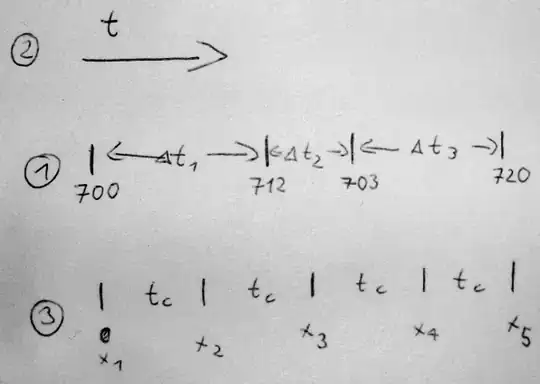 t
②
① Δt₁ Δt₂ Δt₃
700 712 703 720
③ t_c t_c t_c t_c
x₁ x₂ x₃ x₄ x₅